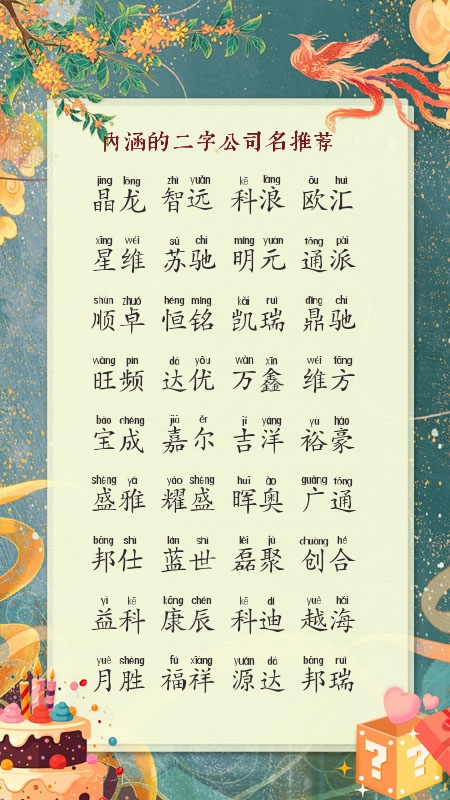 内涵的二字公司名推荐
jīng lóng zhì yuǎn kē làng ōu huì
晶龙 智远 科浪 欧汇
xīng wéi sū chí míng yuán tōng pài
星维 苏驰 明元 通派
shùn zhuó héng míng kǎi ruì dǐng chí
顺卓 恒铭 凯瑞 鼎驰
wàng pín dá yōu wàn xīn wéi fāng
旺频 达优 万鑫 维方
bǎo chéng jiā ěr jí yáng yù háo
宝成 嘉尔 吉洋 裕豪
shèng yǎ yào shèng huī ào guǎng tōng
盛雅 耀盛 晖奥 广通
bāng shì lán shì lěi jù chuàng hé
邦仕 蓝世 磊聚 创合
yì kē kāng chén kē dí yuè hǎi
益科 康辰 科迪 越海
yuè shèng fú xiáng yuán dá bāng ruì
月胜 福祥 源达 邦瑞
? ?